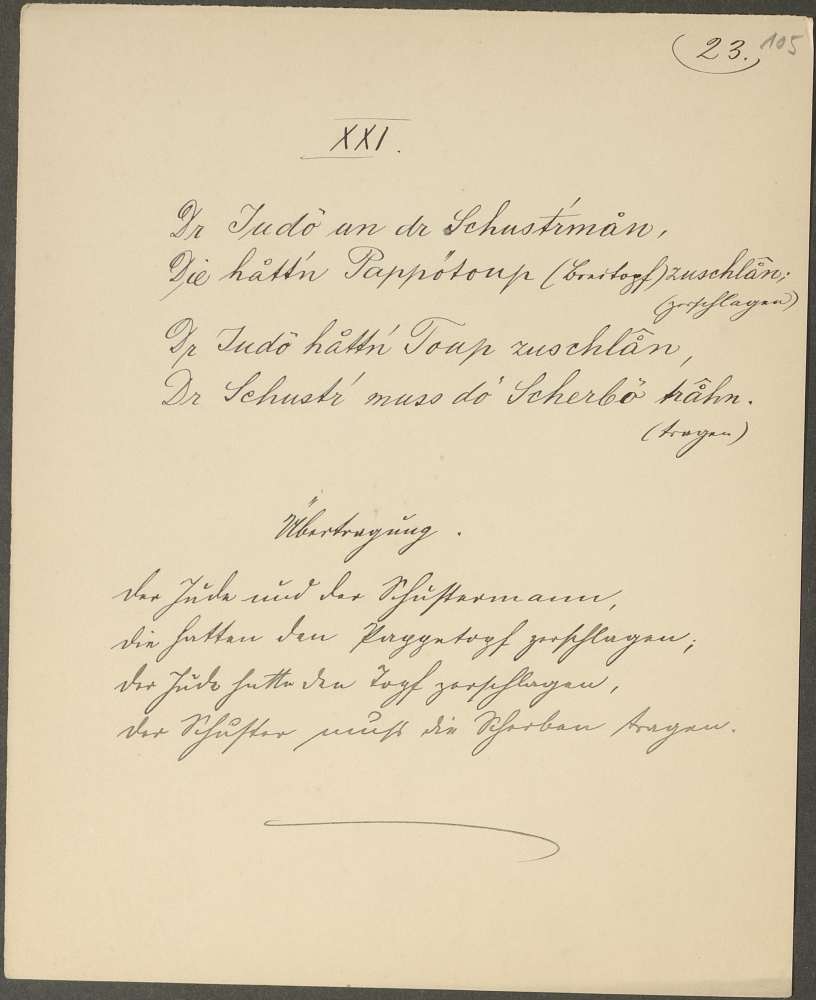 23. 105
XXI.
Dr Judö un dr Schustŕmån,
Die håttń Pappötoup (Breitopf) zuschlån;
(zerschlagen)
Dr Judö håttń Toup zuschlån,
Dr Schustŕ muss dö Scherbö tråhn.
(tragen)
Übertragung.
Der Jude und der Schustermann,
die hatten den Pappetopf zerschlagen;
der Jude hatte den Topf zerschlagen,
der Schuster muss die Scherben tragen.